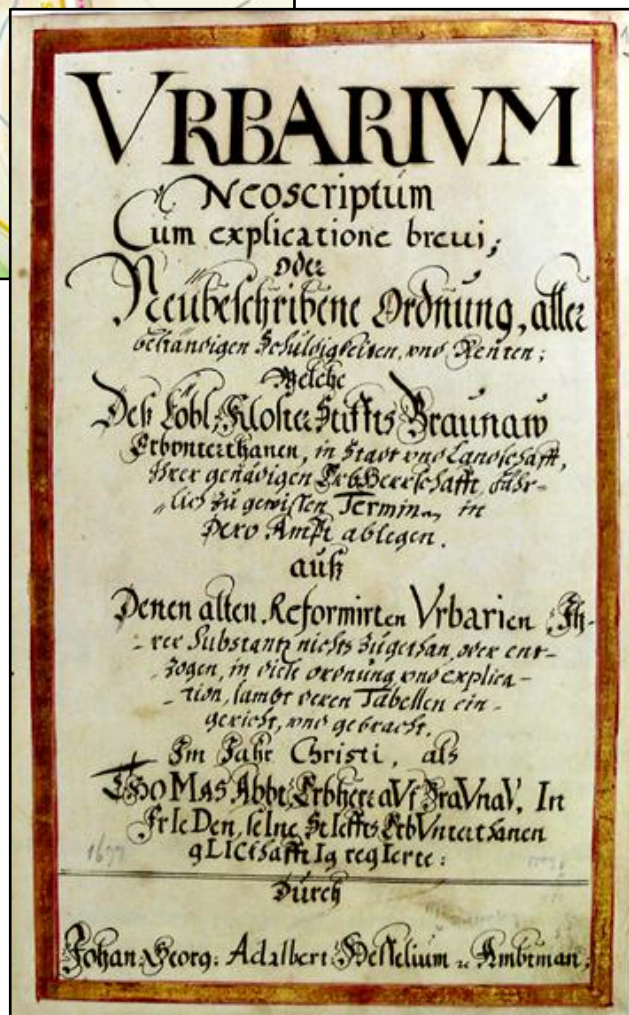 VRBARIVM
Neoscriptum
Cum explicatione breui;
oder
Neübeschribene Ordnung, aller
beständigen Schuldigkeiten, vnd Renten;
Welche
Deß Löbl: Kloster Stiffts Braunaw
Erbvnterthanen, in Stadt vnd Landschafft,
Ihrer genädigen ErbHerrschafft, Jähr-
lich zu gewissen Termin, in
Dero Ampt ablegen.
auß
Denen alten Reformirten Vrbarien Ih-
rer Substantz nichts zugethan, oder ent-
zogen, in diese ordnung vnd explica-
tion, sambt deren Tabellen ein-
gericht, vnd gebracht.
Im Jahr Christi, als
THoMAs Abbt, Erbherr aVf BraVnaV, In
FrIeDen, seIne StIeffts ErbVnterthanen
gLICkhafftIg regIerte:
1677
Durch
Johan: Georg: Adalbert: Ambtman;